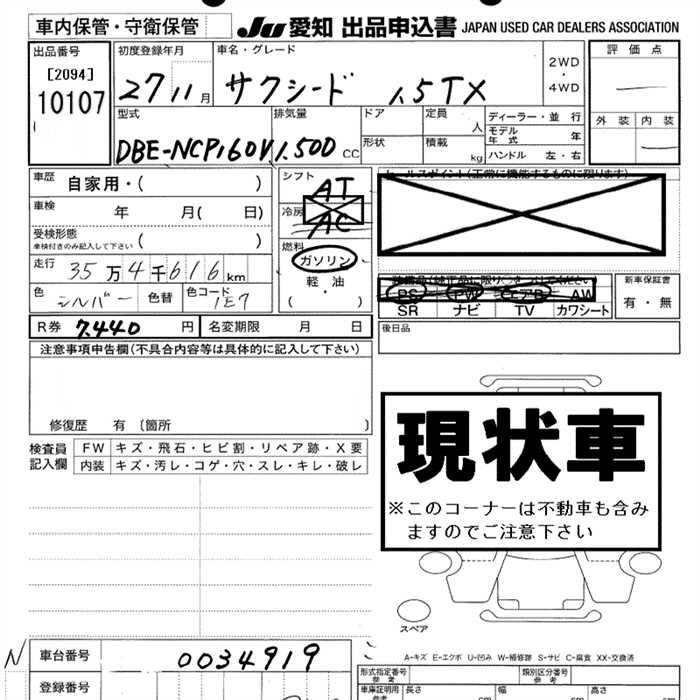 車内保管・守衛保管
JU 愛知 出品申込書 JAPAN USED CAR DEALERS ASSOCIATION
出品番号
[2094]
10107
初度登録年月
27 11月
車名・グレード
サクシード 1.5TX
2WD
・
4WD
評価点
外装 内装
型式
DBE-NCP160V
排気量
1.500 CC
ドア
形状
定員 人
積載 kg
ディーラー・並行
モデル年式 年
ハンドル 左・右
車歴 自家用・( )
車検 年 月( 日)
受検形態
車検付きのみ記入して下さい ( )
走行 35万4千616km
色 シルバー 色替 色コード 1E7
シフト
AT
冷房
AC
燃料
ガソリン
軽・油
( ・ )
セールスポイント(正常に機能するものに限ります)
装備品(純正品に限り○をつけてください)
PS PW エアB AW
SR ナビ TV カワシート
新車保証書
有・無
後日品
R券 7,440 円 名変期限 月 日
注意事項申告欄(不具合内容等は具体的に記入して下さい)
修復歴 有 〔箇所 〕
検査員記入欄
FW キズ・飛石・ヒビ割・リペア跡・X要
内装 キズ・汚レ・コゲ・穴・スレ・キレ・破レ
現状車
※このコーナーは不動車も含み
ますのでご注意下さい
スペア
A-キズ E-エクボ U-凹み W-補修跡 S-サビ C-腐食 XX-交換済
N 車台番号 0034919
登録番号
形式指定番号 参考
類別区分番号 参考
車庫証明用 参考
長さ cm
幅 cm
高さ cm